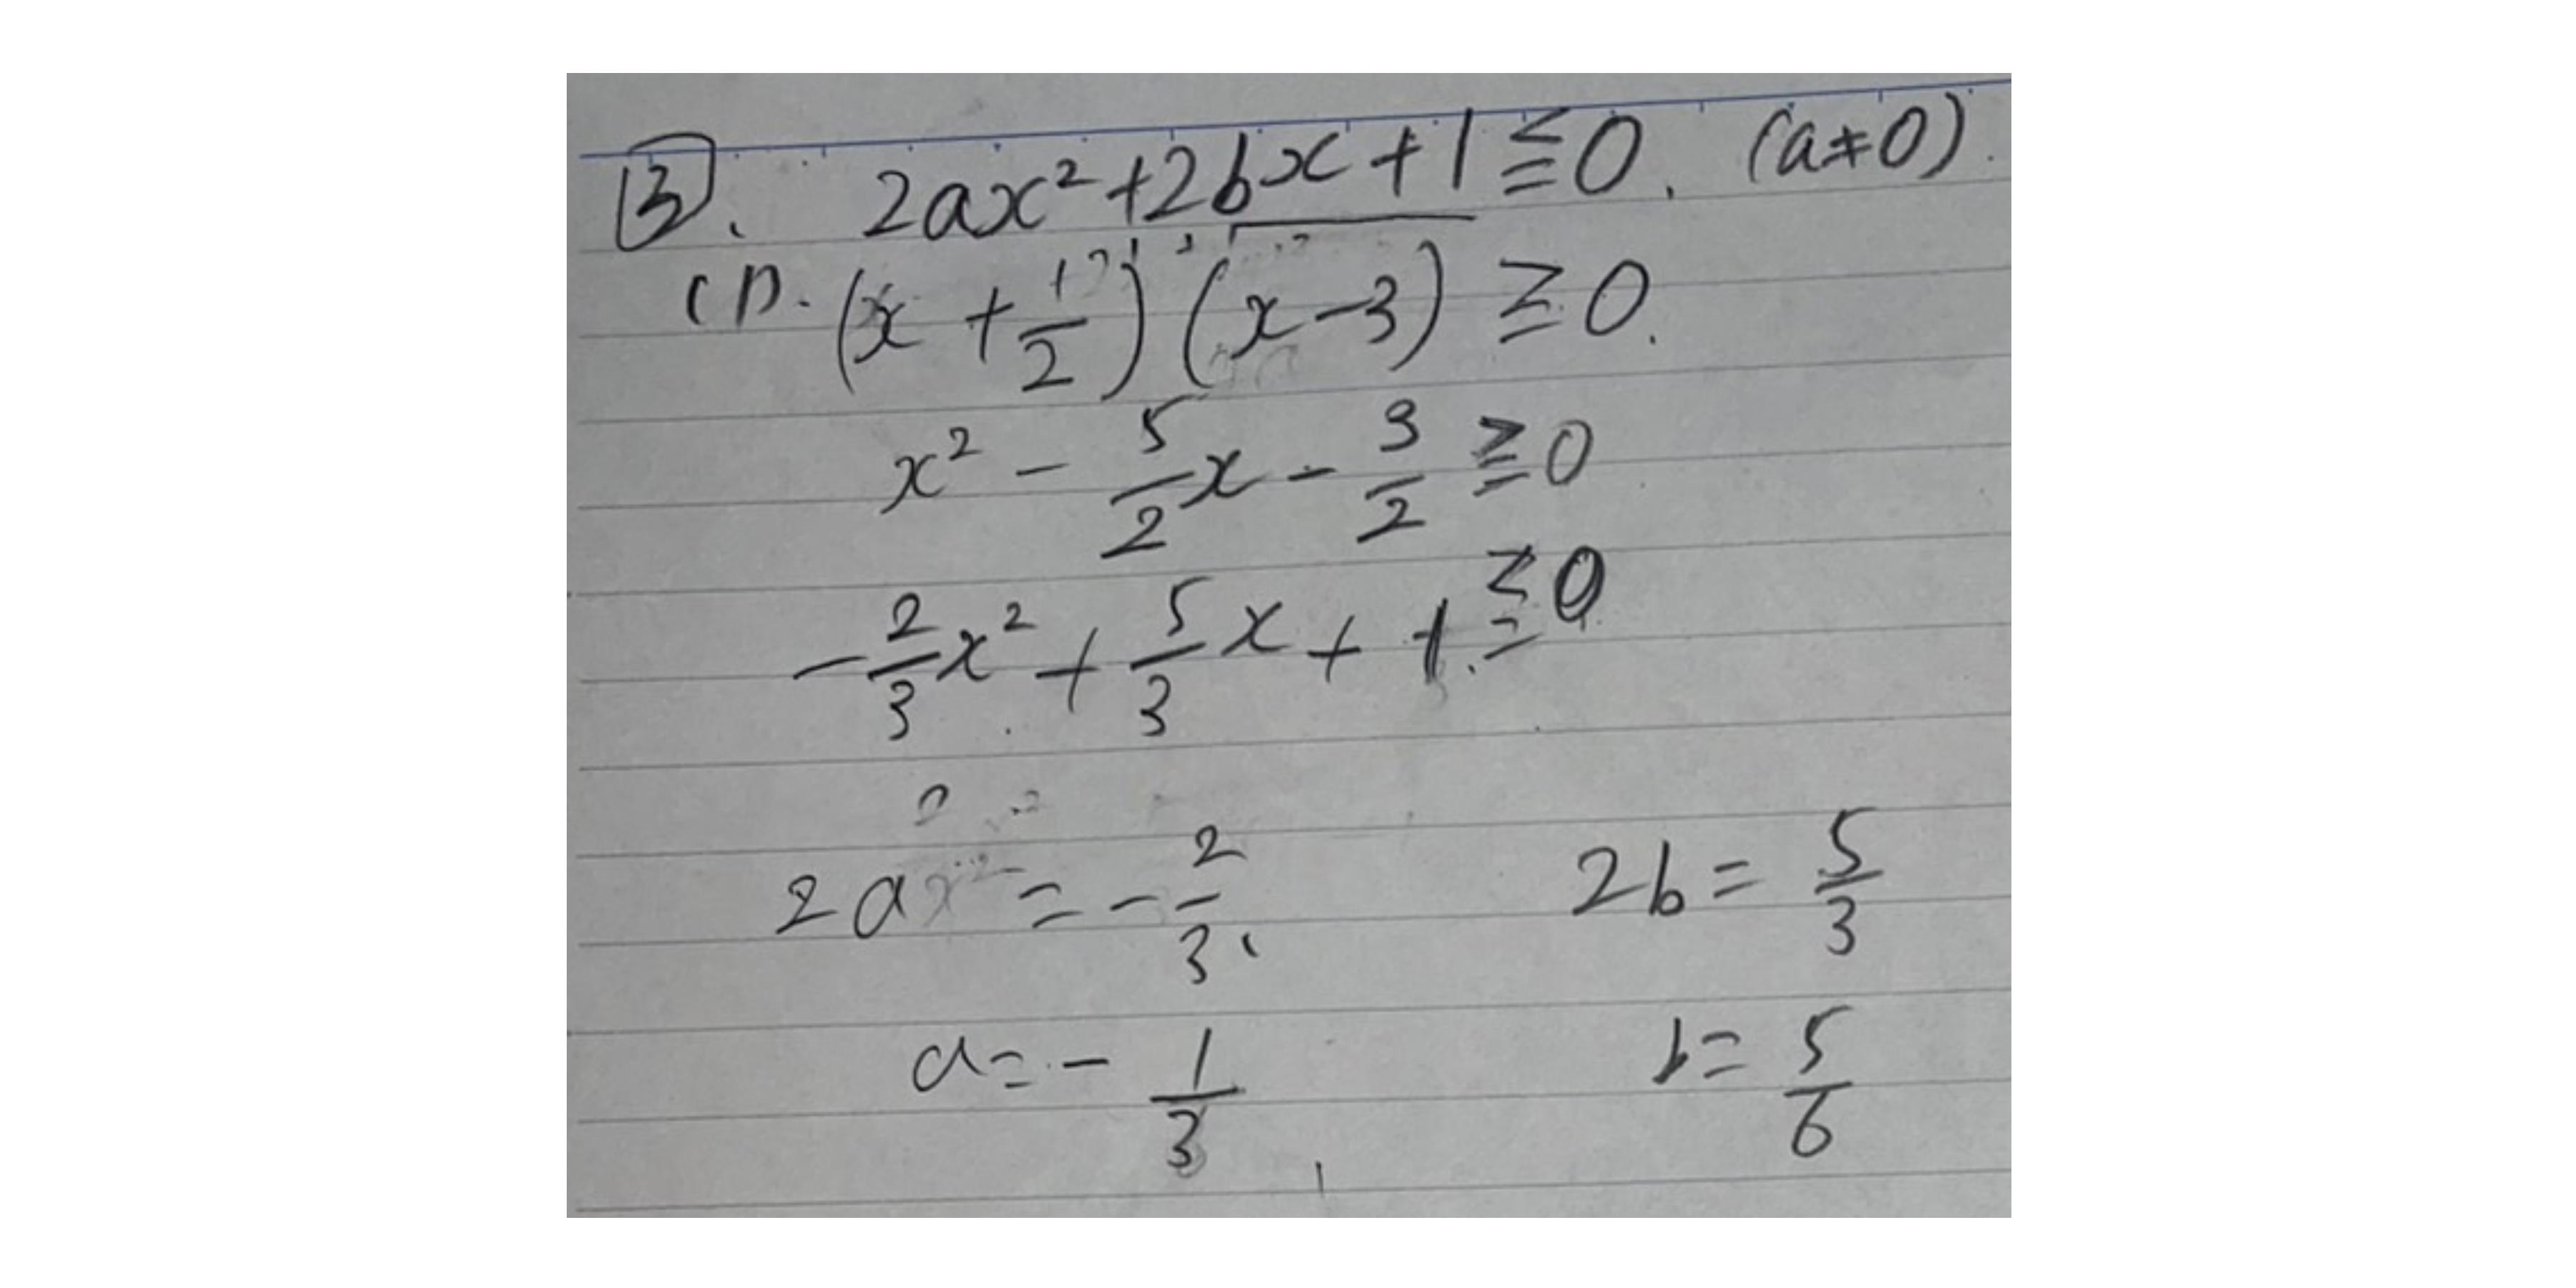 3. 2ax² + 2bx + 1 ≦ 0. (a≠0).
(1). (x + 1/2) (x - 3) ≧ 0.
x² - 5/2 x - 3/2 ≧ 0
-2/3 x² + 5/3 x + 1 ≦ 0
2a = -2/3 2b = 5/3
a = -1/3 b = 5/6